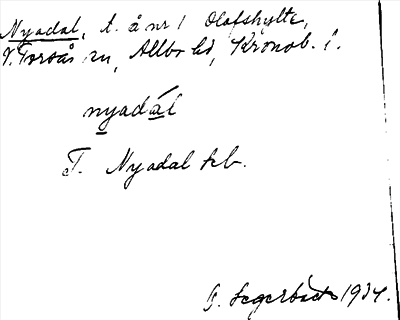 Nyadal, t. å nr 1 Olofshylte,
V. Torsås sn, Allbo hd, Kronob. l.
nyadál
T. Nyadal tkb.
B. Segerbäck 1934.